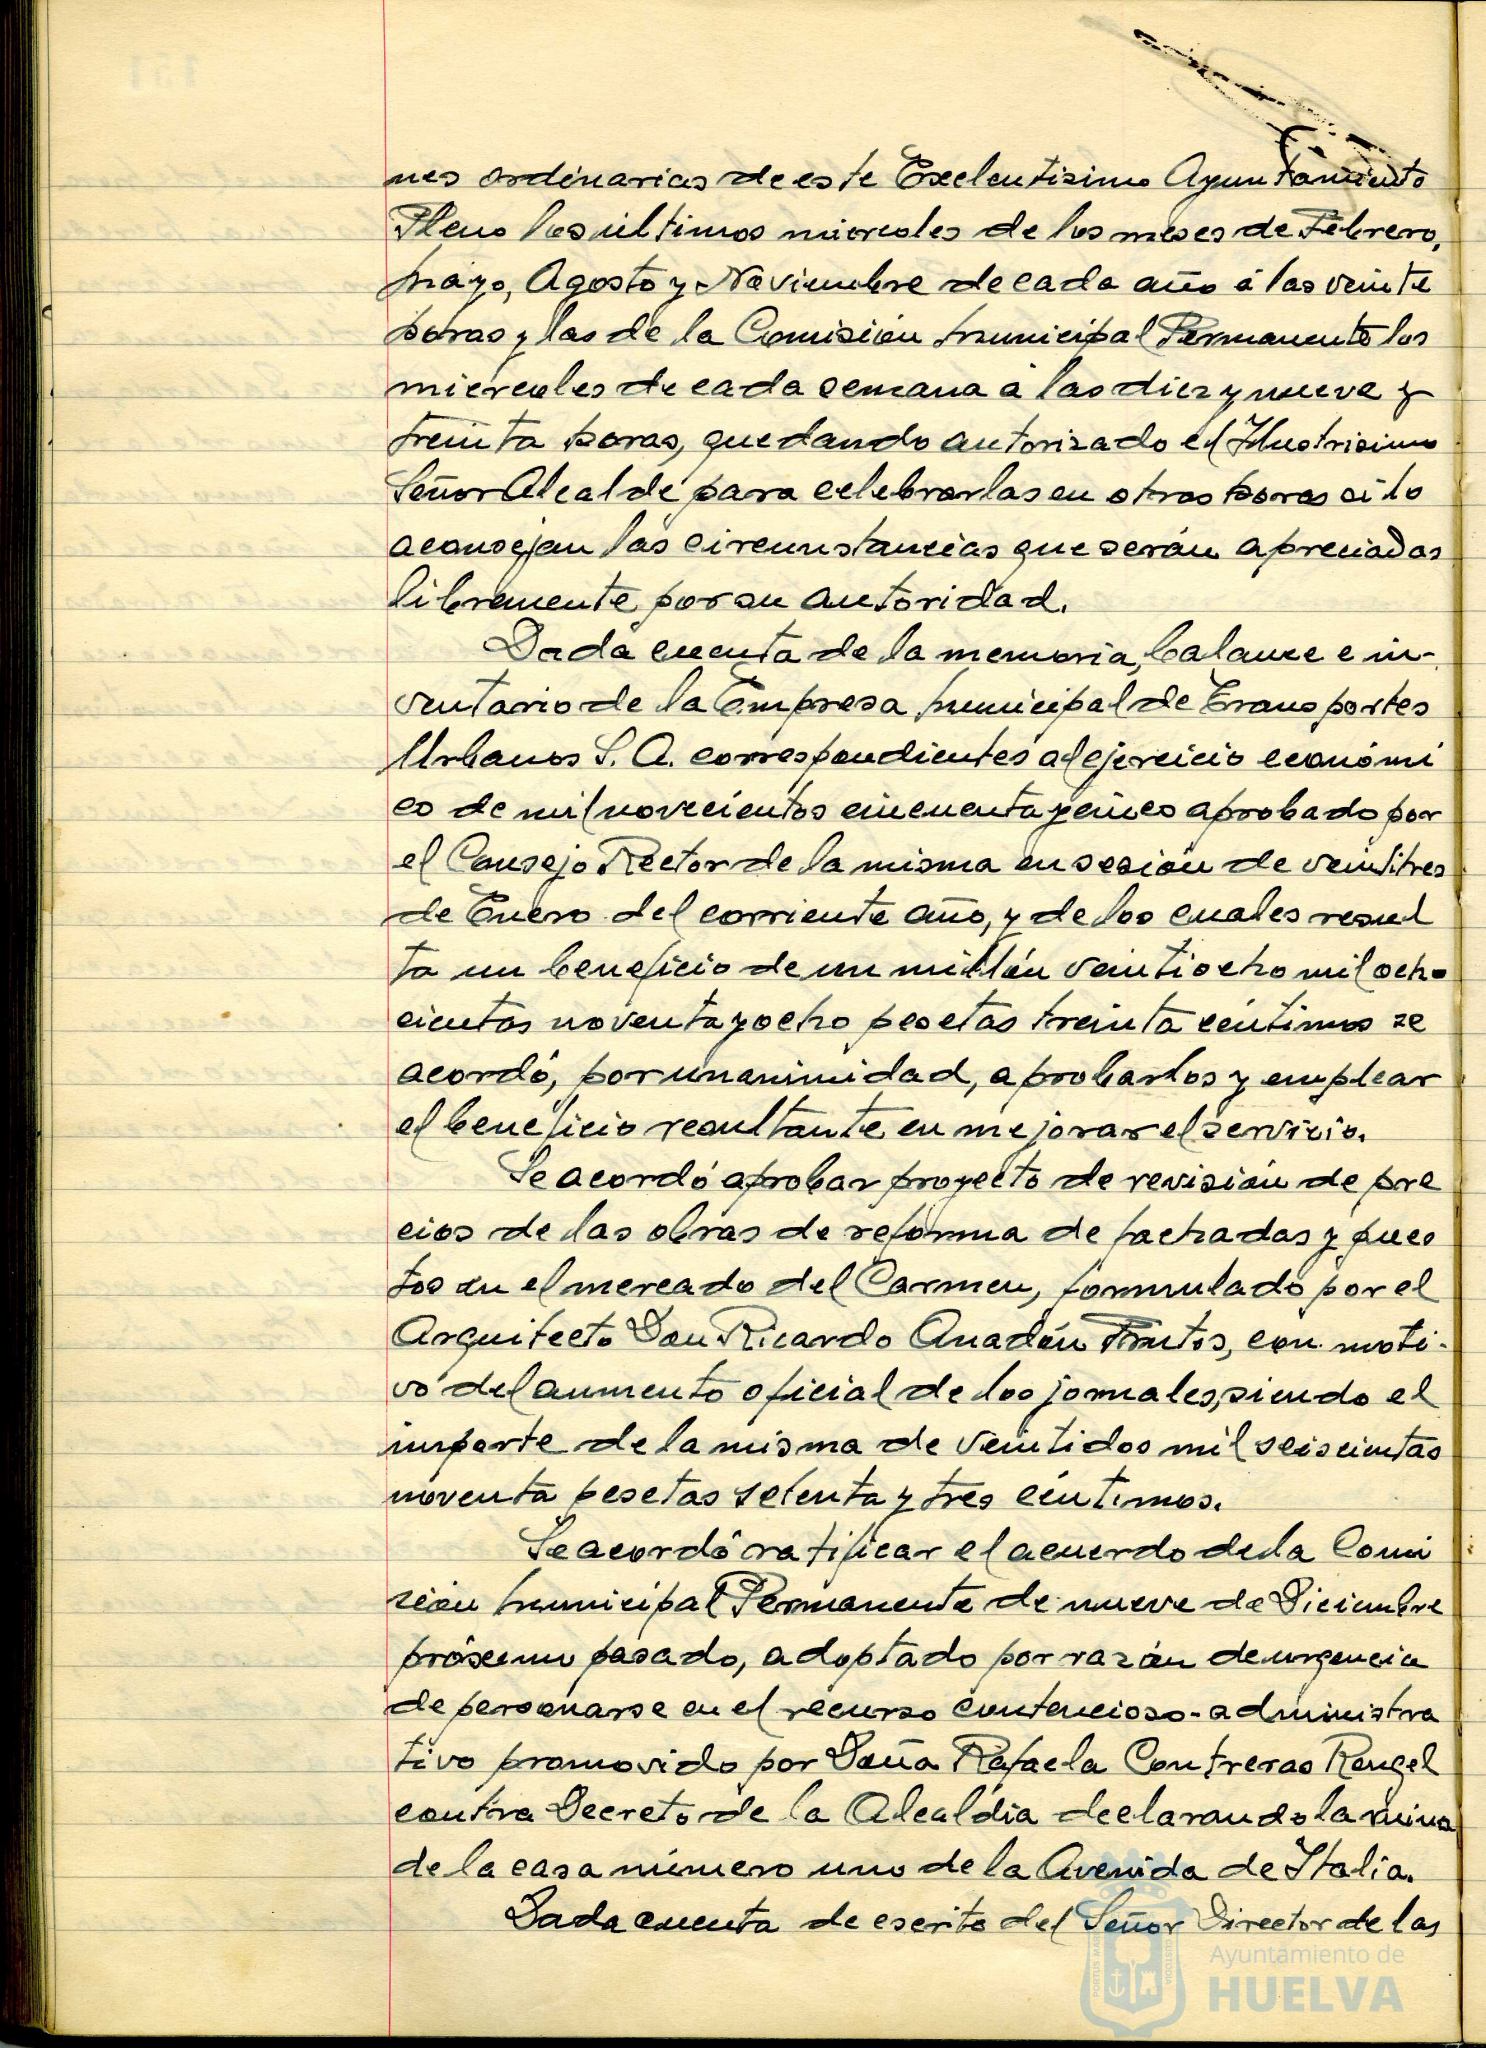 nes ordinarias de este Exelentisimo Ayuntamiento
Pleno los últimos miercoles de los meses de Febrero,
Mayo, Agosto y Noviembre de cada año á las veinte
horas y las de la Comisión Municipal Permanente los
miercoles de cada semana á las diez y nueve y
treinta horas, quedando autorizado el Ilustrisimo
Señor Alcalde para celebrarlas en otras horas si lo
aconsejan las circunstancias que serán apreciadas
libremente por su autoridad.
Dada cuenta de la memoria, balance e in-
ventario de la Empresa Municipal de Transportes
Urbanos S. A. correspondientes al ejercicio económi
co de mil novecientos cincuenta y cinco aprobado por
el Consejo Rector de la misma en sesión de veintitres
de Enero del corriente año, y de los cuales resul
ta un beneficio de un millón veintiocho mil ocho
cientas noventa y ocho pesetas treinta céntimos se
acordó, por unanimidad, aprobarlos y emplear
el beneficio resultante en mejorar el servicio.
Se acordó aprobar proyecto de revisión de pre
cios de las obras de reforma de fachadas y pues
tos en el mercado del Carmen, formulado por el
Arquitecto Don Ricardo Anadón Frutos, con moti-
vo del aumento oficial de los jornales, siendo el
importe de la misma de veintidos mil seiscientas
noventa pesetas setenta y tres céntimos.
Se acordó ratificar el acuerdo de la Comi
sión Municipal Permanente de nueve de Diciembre
próximo pasado, adoptado por razón de urgencia
de personarse en el recurso contencioso-administra
tivo promovido por Doña Rafaela Contreras Rangel
contra Decreto de la Alcaldia declarando la ruina
de la casa número uno de la Avenida de Italia.
Dada cuenta de escrito del Señor Director de las
Ayuntamiento de
HUELVA